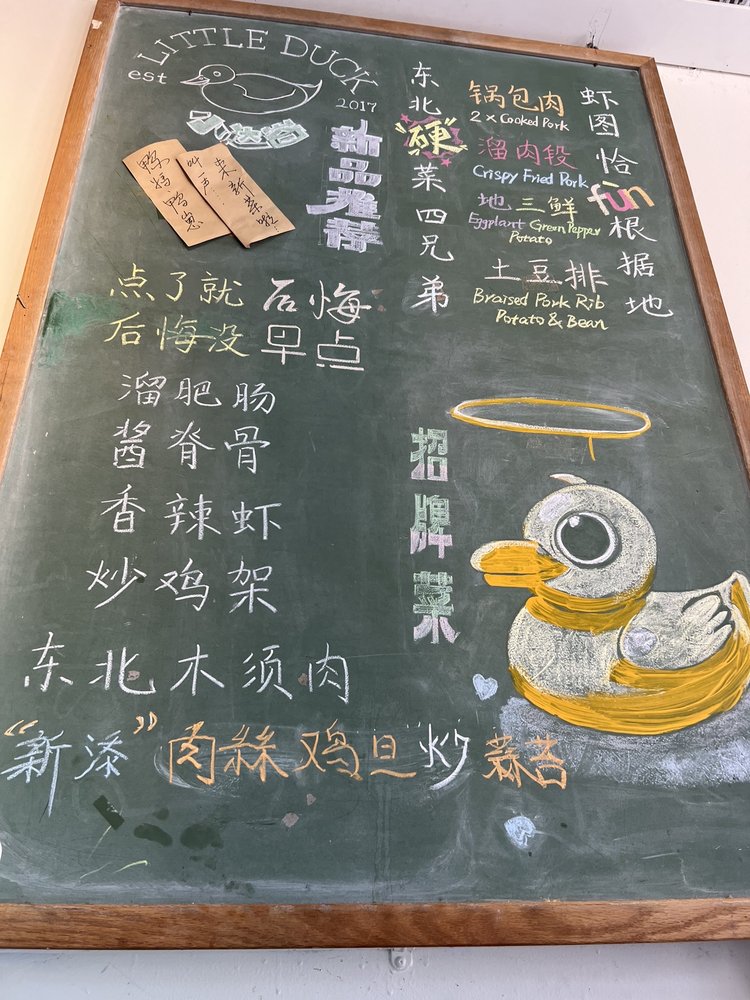 LITTLE DUCK
est
2017
小达岩
鸭妈鸭崽
叫一声:
来新菜啦!
新品推荐
点了就后悔
后悔没早点
溜肥肠
酱脊骨
香辣虾
炒鸡架
东北木须肉
"新添"肉絲鸡旦炒蒜苔
东北"硬"菜四兄弟
锅包肉
2 x Cooked Pork
溜肉段
Crispy Fried Pork
地三鲜
Eggplant Green Pepper
Potato
土豆排
Braised Pork Rib
Potato & Bean
虾图恰fun根据地
招牌菜